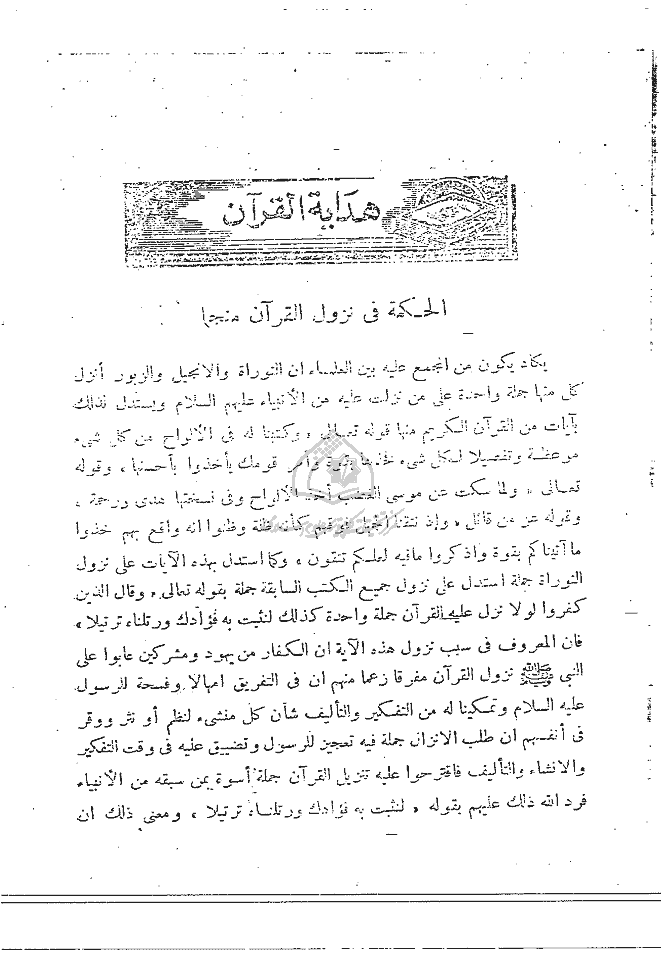 هداية القرآن
الحكمة فى نزول القرآن منجما
يكاد يكون من المجمع عليه بين العلماء ان التوراة والانجيل والزبور أنزل
كل منها جملة واحدة على من نزلت عليه من الأنبياء عليهم السلام ويستدل لذلك
بآيات من القرآن الكريم منها قوله تعالى « وكتبنا له فى الألواح من كل شىء
موعظة وتفصيلا لكل شىء فخذها بقوة وأمر قومك يأخذوا بأحسنها » وقوله
تعالى « ولما سكت عن موسى الغضب أخذ الألواح وفى نسختها هدى ورحمة »
وقوله عز من قائل « وإذ نتقنا الجبل فوقهم كأنه ظلة وظنوا انه واقع بهم خذوا
ما آتيناكم بقوة واذكروا مافيه لعلكم تتقون » وكما استدل بهذه الآيات على نزول
التوراة جملة استدل على نزول جميع الكتب السابقة جملة بقوله تعالى « وقال الذين
كفروا لولا نزل عليه القرآن جملة واحدة كذلك لنثبت به فؤادك ورتلناه ترتيلا »
فان المعروف فى سبب نزول هذه الآية ان الكفار من يهود ومشركين عابوا على
النبى ﷺ نزول القرآن مفرقا زعما منهم ان فى التفريق امهالا وفسحة للرسول
عليه السلام وتمكينا له من التفكير والتأليف شأن كل منشىء لنظم أو نثر ووقر
فى أنفسهم ان طلب الانزال جملة فيه تعجيز للرسول وتضييق عليه فى وقت التفكير
والانشاء والتأليف فاقترحوا عليه تنزيل القرآن جملة أسوة بمن سبقه من الأنبياء
فرد الله ذلك عليهم بقوله « لنثبت به فؤادك ورتلناه ترتيلا » ومعنى ذلك ان